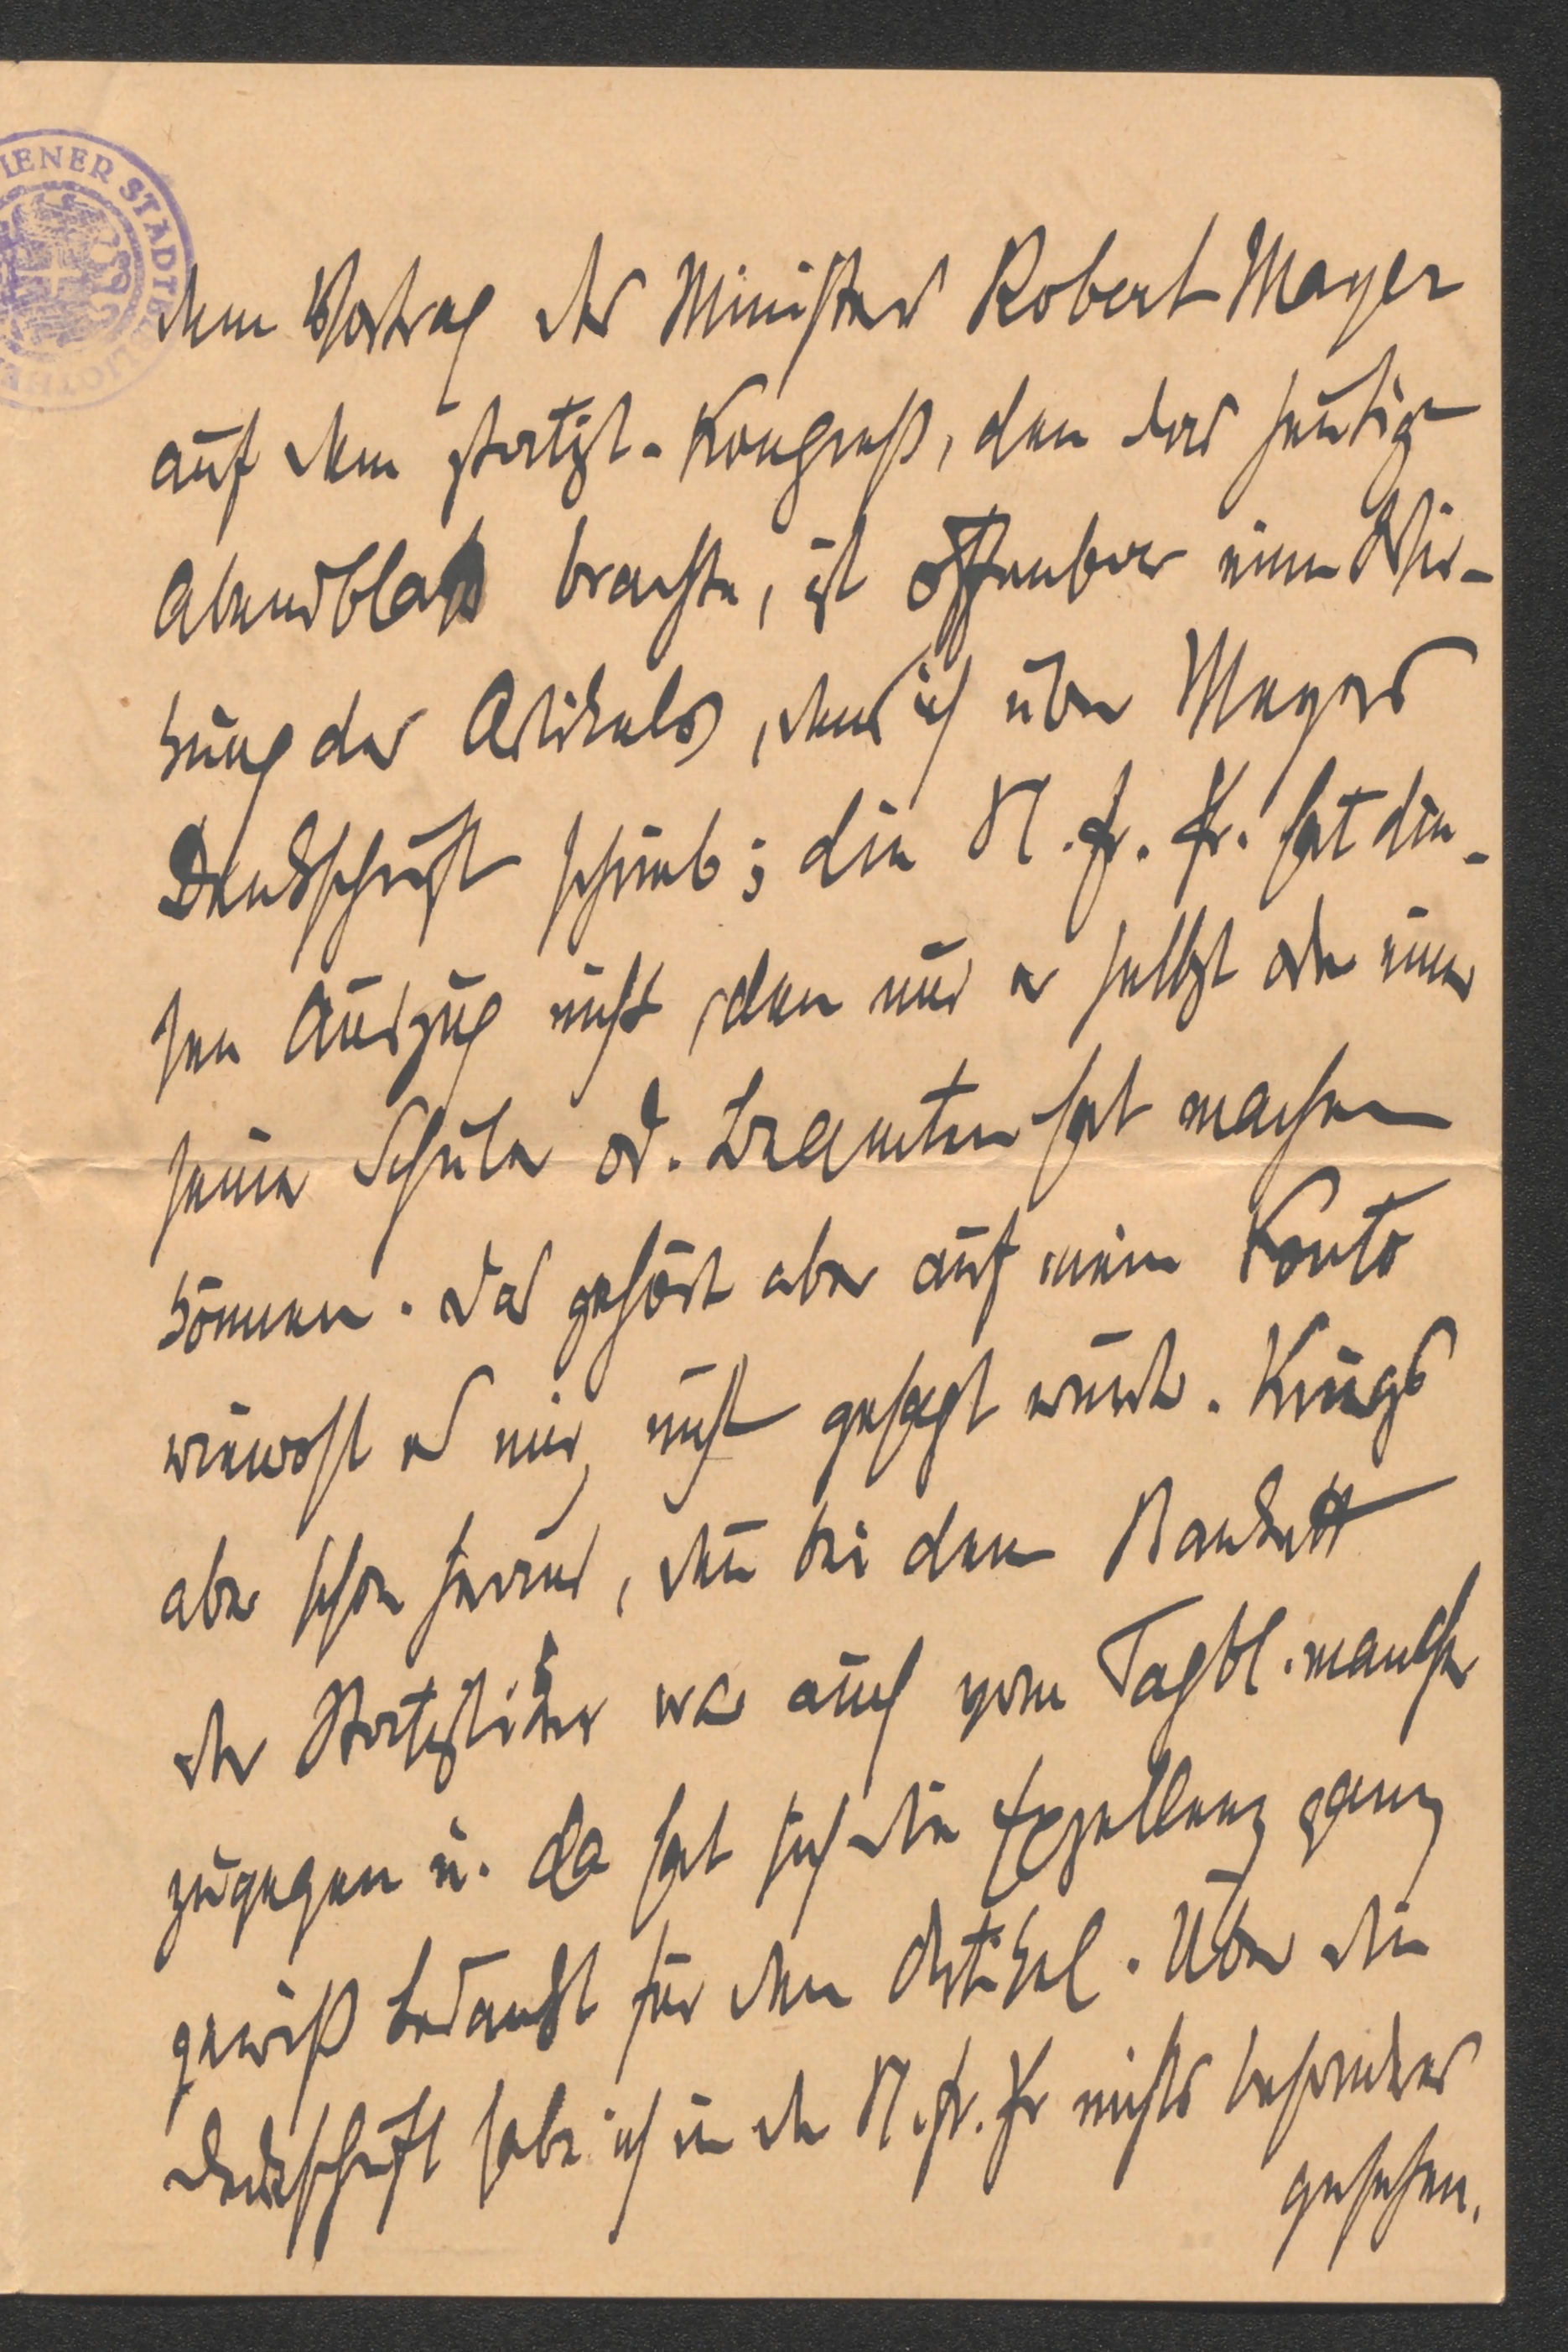 IENER STADTBIBLIOTHE
dem Vortrag des Ministers Robert Mayer
auf dem statist. Kongreß, den das heutige
Abendblatt brachte, ist offenbar eine Wir-
kung des Artikels, den ich über Mayers
Denkschrift schrieb; die N. fr. Pr. hat die-
sen Auszug nicht, den nur er selbst oder einer
seiner Schüler od. Beamten hat machen
können. Das gehört aber auf mein Konto
wiewohl es mir nicht gesagt wurde. Kriegs
aber schon heraus, denn bei dem Bankett
der Statistiker war auch vom Tagbl. mancher
zugegen u. da hat sich die Exzellenz ganz
gewiß bedankt für den Artikel. Über die
Denkschrift habe ich in der N. fr. Pr nichts besonderes
gesehen.